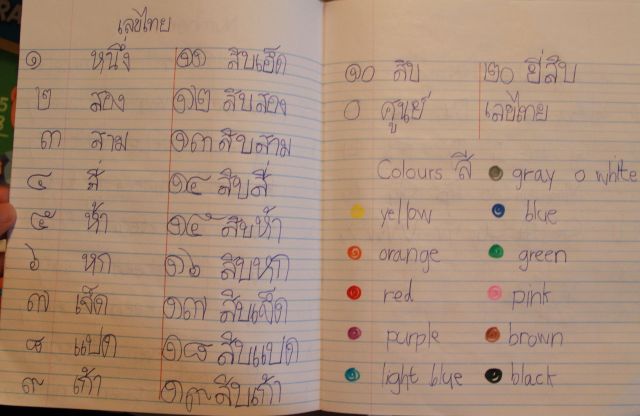 เลขไทย
๑ หนึ่ง ๑๑ สิบเอ็ด
๒ สอง ๑๒ สิบสอง
๓ สาม ๑๓ สิบสาม
๔ สี่ ๑๔ สิบสี่
๕ ห้า ๑๕ สิบห้า
๖ หก ๑๖ สิบหก
๗ เจ็ด ๑๗ สิบเจ็ด
๘ แปด ๑๘ สิบแปด
๙ เก้า ๑๙ สิบเก้า
๑๐ สิบ ๒๐ ยี่สิบ
๐ ศูนย์ เลขไทย
Colours สี gray white
yellow blue
orange green
red pink
purple brown
light blue black